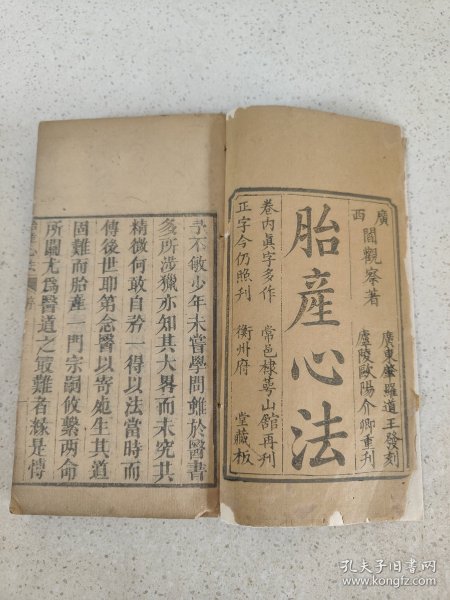 廣西
閻觀察著
廣東肇羅道王發刻
廬陵歐陽介卿重刊
胎產心法
卷內眞字多作
正字今仍照刊
常邑棣萼山舘再刊
衡州府
堂藏板
予不敏少年未嘗學問雖於醫書
多所涉獵亦知其大畧而未究其
精微何敢自矜一得以法當時而
傳後世耶第念醫以寄死生其道
固難而胎產一門宗嗣攸繫兩命
所關尤爲醫道之最難者緣是慱
胎產心法
序
孔夫子旧书网
www.kongfz.com